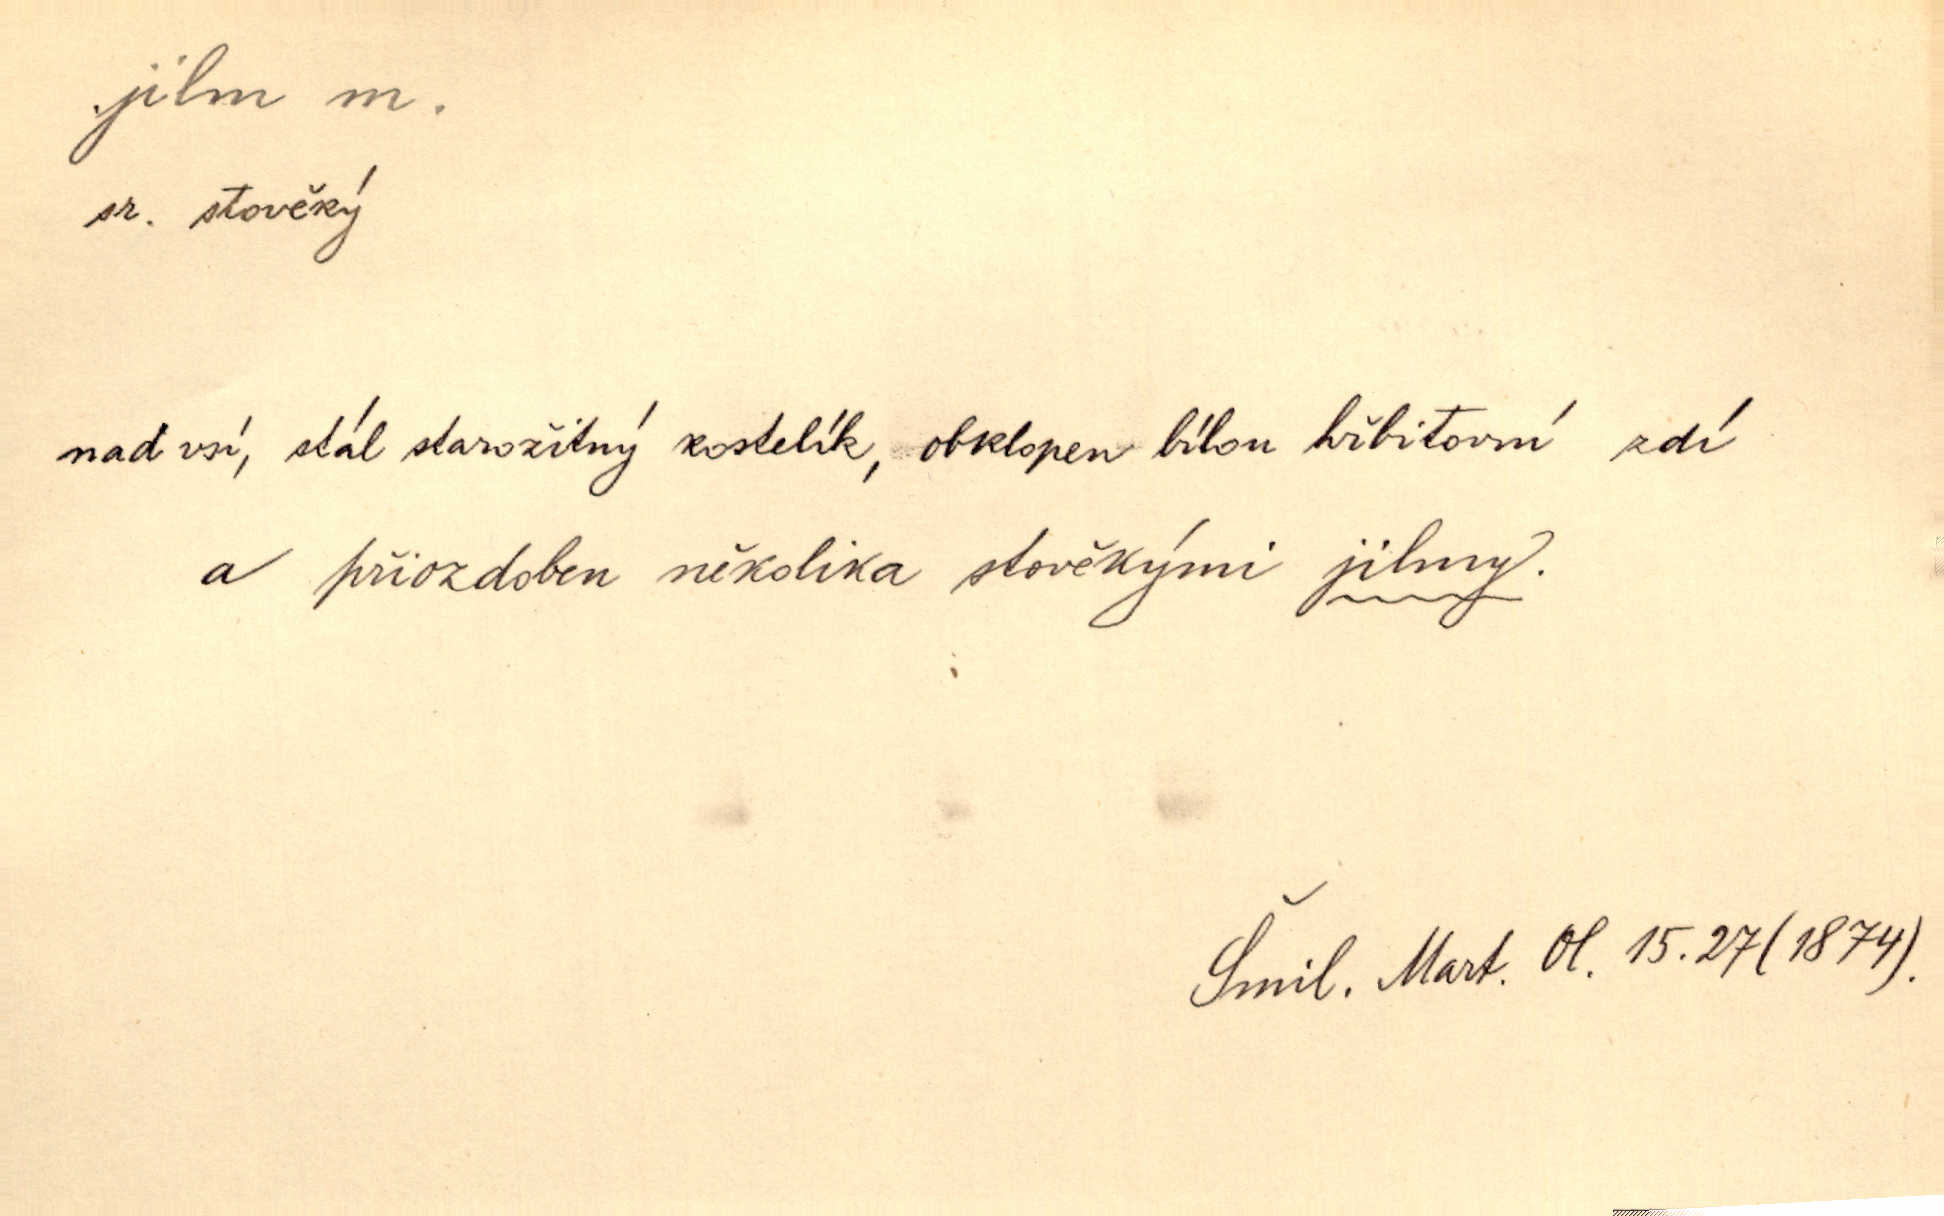 jilm m.
sr. stověký
nad vsí, stál starožitný kostelík, obklopen bílou hřbitovní zdí
a přiozdoben několika stověkými jilmy.
Šmil. Mart. Ol. 15.27(1874).